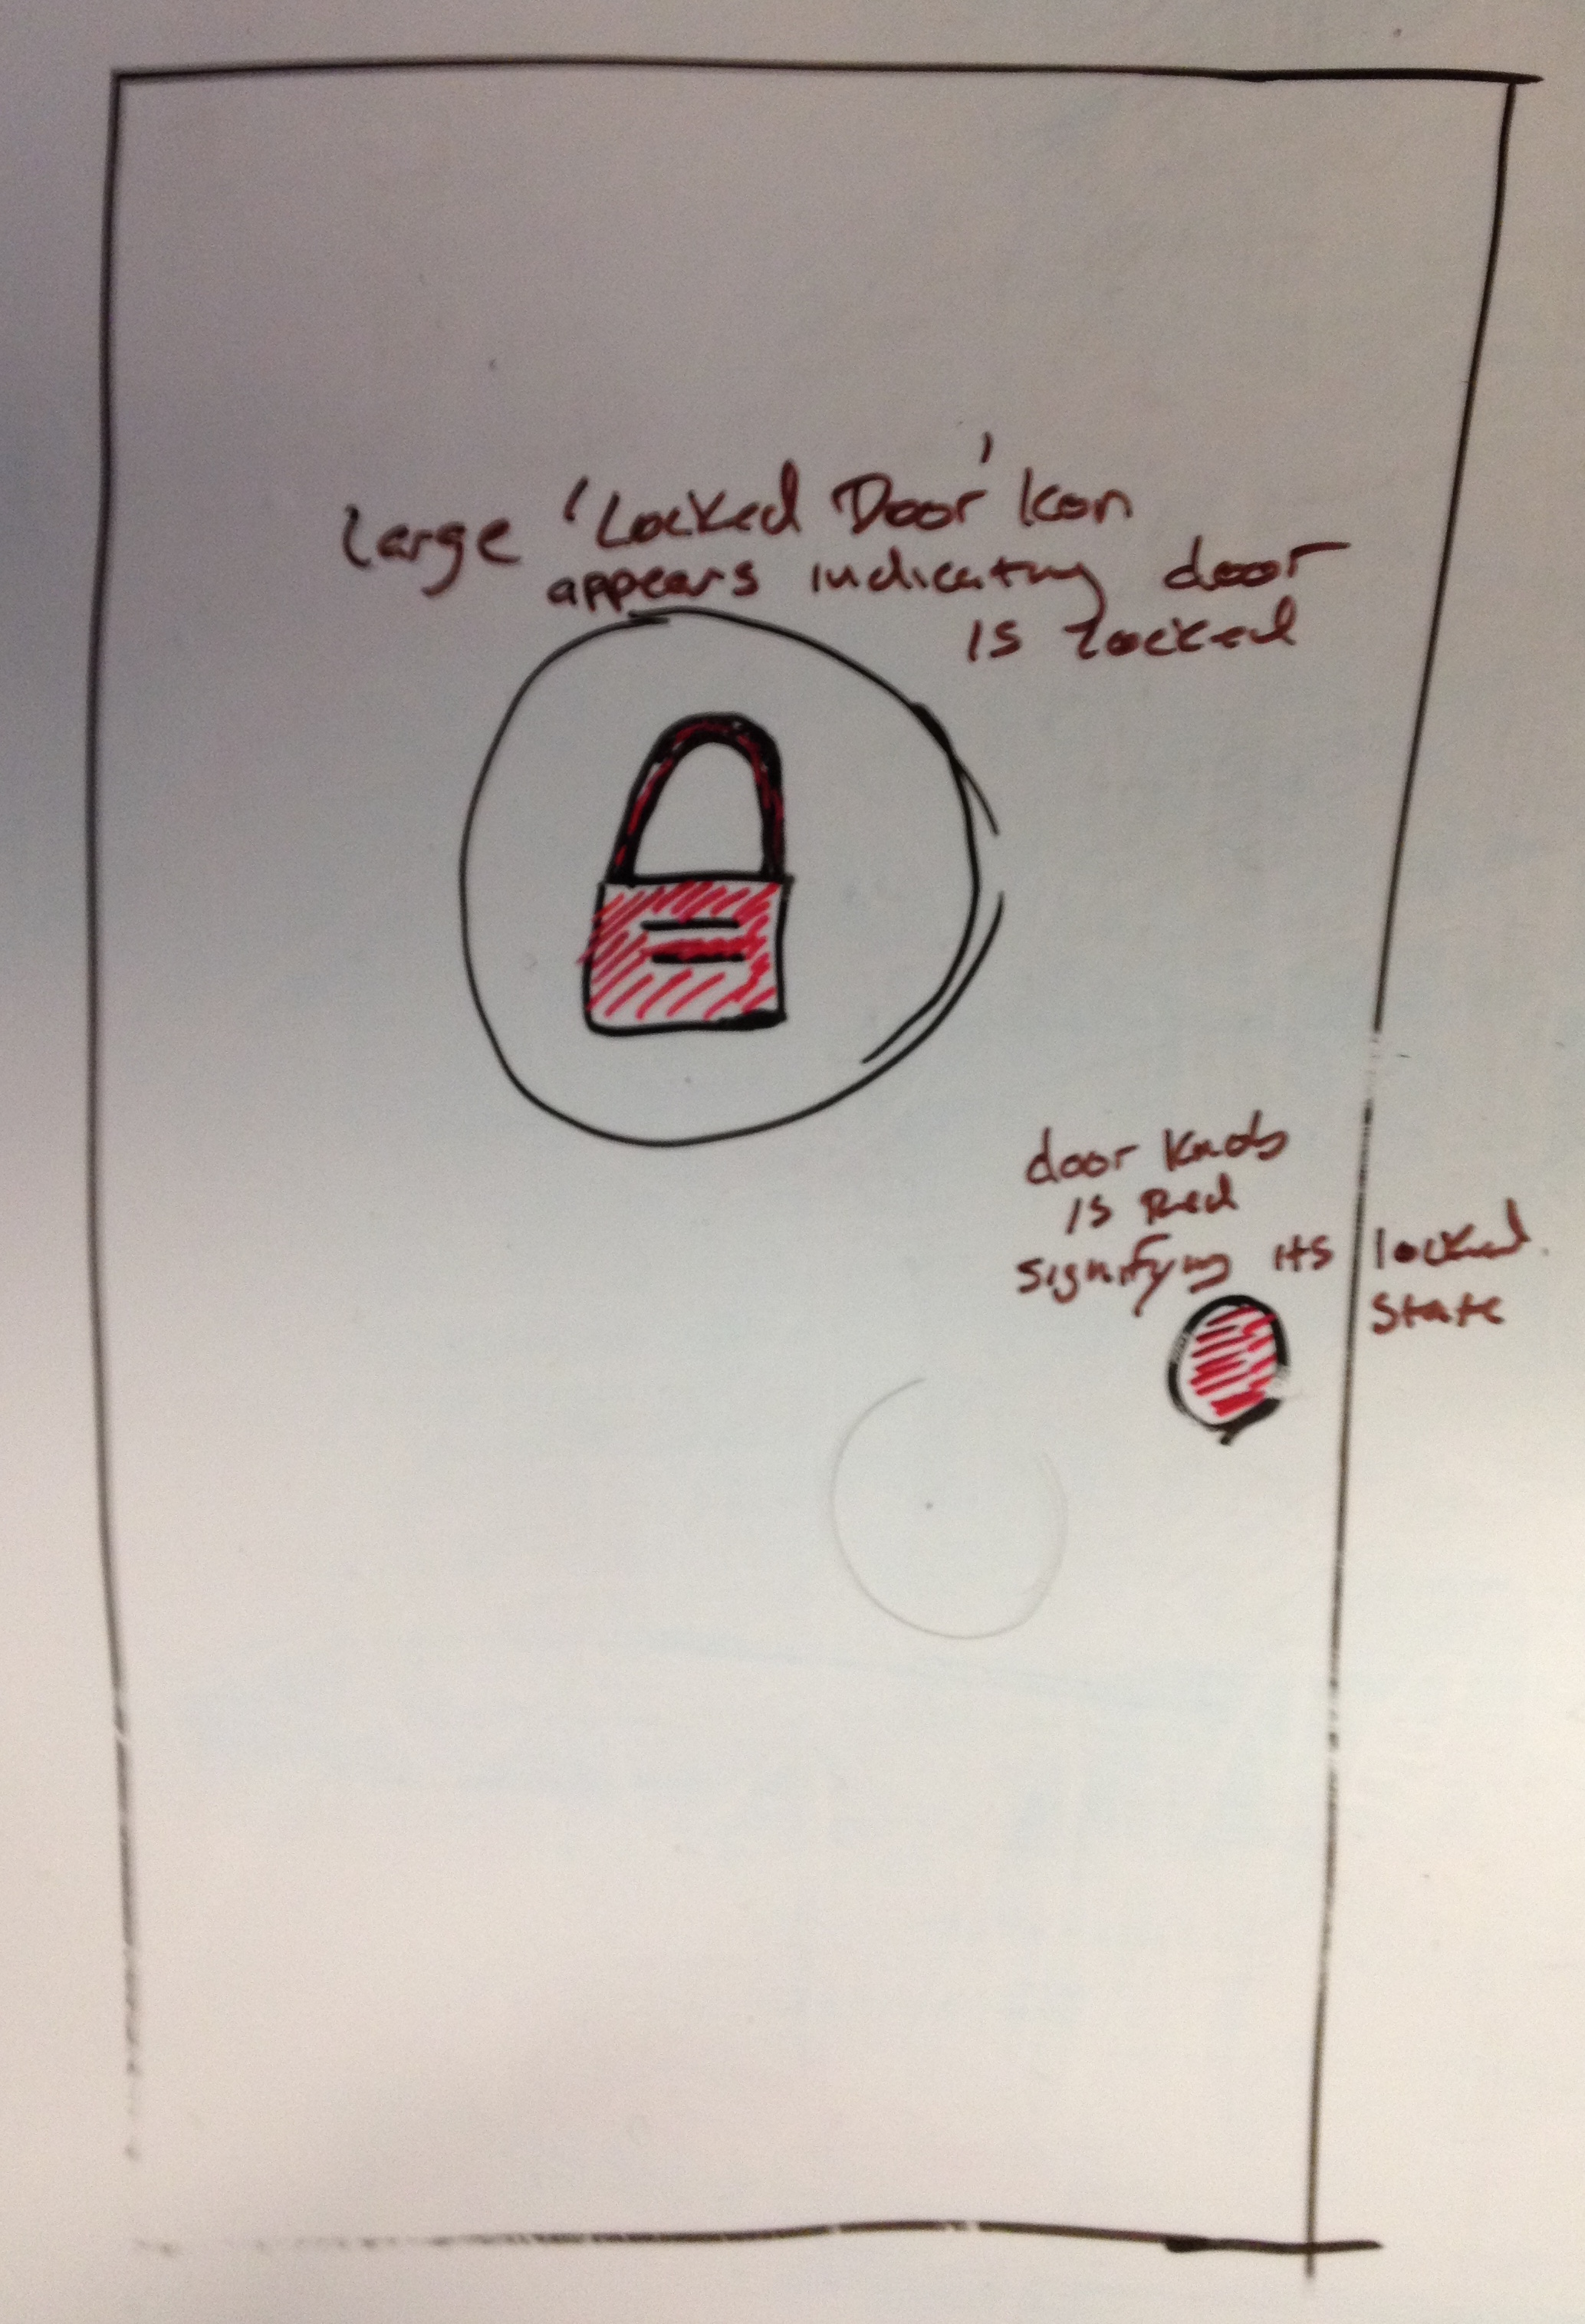 large 'Locked Door' Icon
appears indicating door
is locked
door knob
is Red
signifying its locked
state